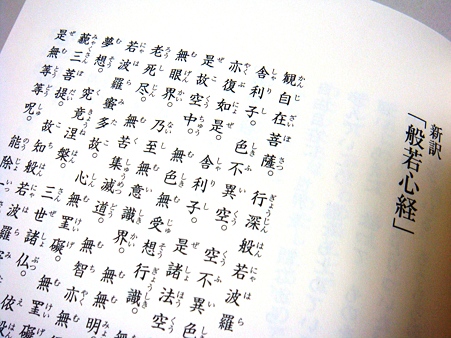 新訳
「般若心経」
観自在菩薩。行深般若波羅
舎利子。色不異空。空不異色
亦復如是。舎利子。是諸法空
是故空中。無色。無受想行識。
無眼界。乃至無意識界。無無明
老死尽。無苦集滅道。無智亦無
若波羅蜜多故。心無罣礙。無罣礙
夢想。究竟涅槃。三世諸仏。依般
藐三菩提。故知般若波羅
是無等等呪。能除一